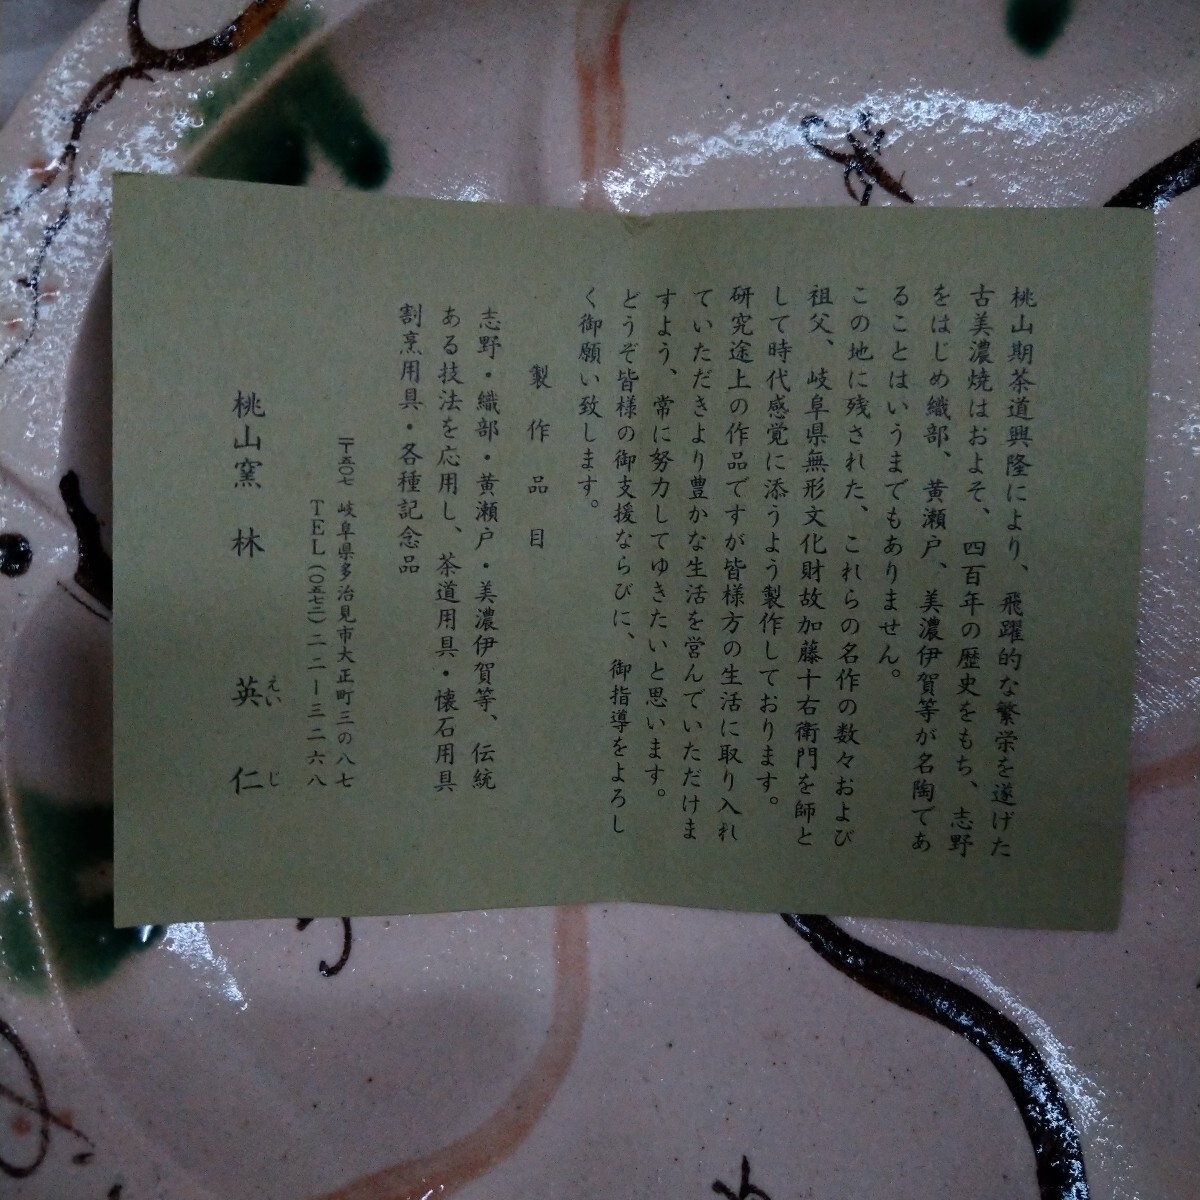 桃山期茶道興隆により、飛躍的な繁栄を遂げた
古美濃焼はおよそ、四百年の歴史をもち、志野
をはじめ織部、黄瀬戸、美濃伊賀等が名陶であ
ることはいうまでもありません。
この地に残された、これらの名作の数々および
祖父、岐阜県無形文化財故加藤十右衛門を師と
して時代感覚に添うよう製作しております。
研究途上の作品ですが皆様方の生活に取り入れ
ていただきより豊かな生活を営んでいただけま
すよう、常に努力してゆきたいと思います。
どうぞ皆様の御支援ならびに、御指導をよろし
く御願い致します。
製作品目
志野・織部・黄瀬戸・美濃伊賀等、伝統
ある技法を応用し、茶道用具・懐石用具
割烹用具・各種記念品
〒五〇七 岐阜県多治見市大正町三の八七
TEL(〇五七二)二二ー三二六八
桃山窯 林 英仁
えいじ